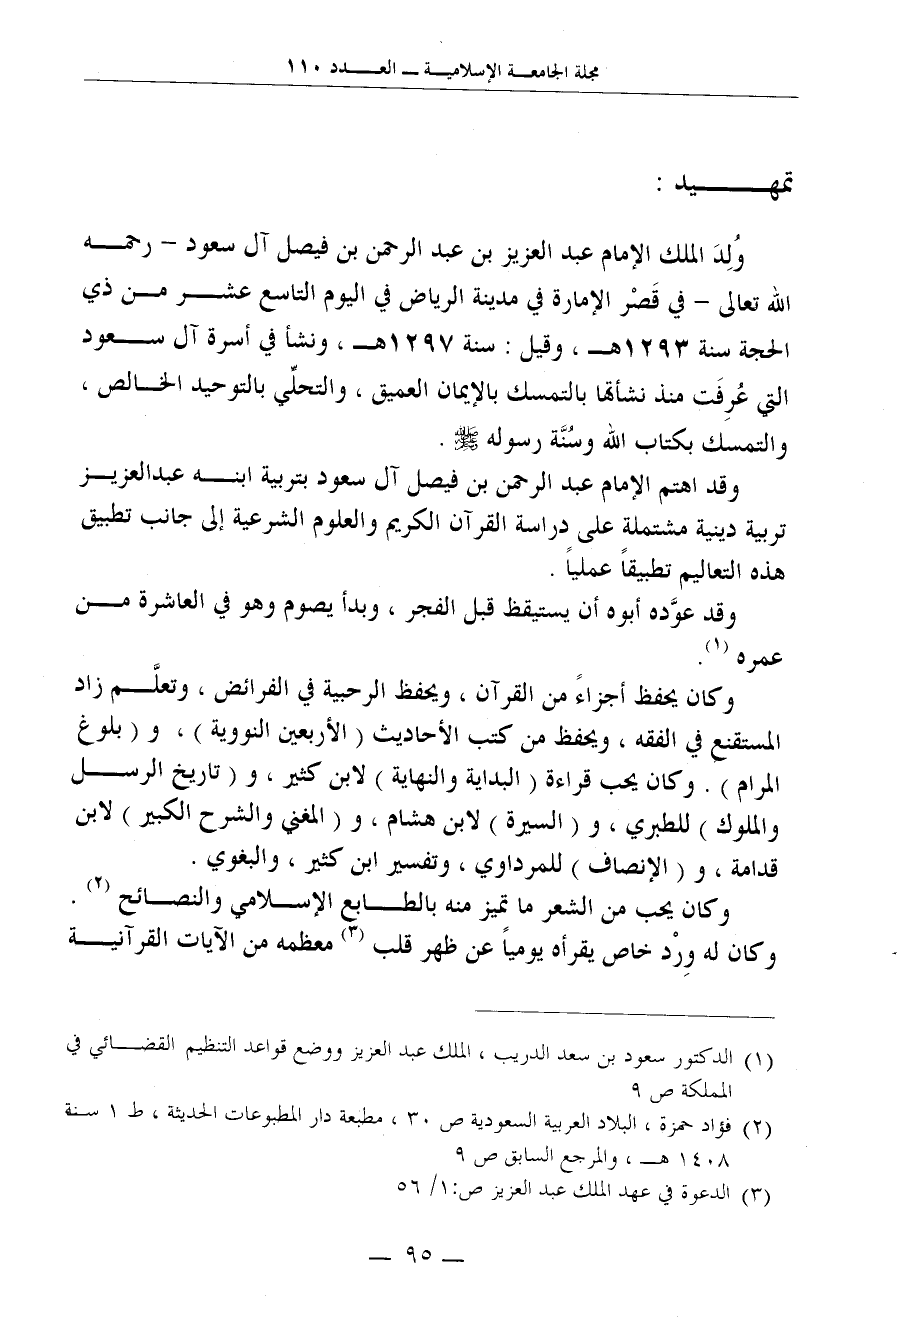 مجلة الجامعة الإسلامية – العدد ١١٠
تمهيد :
وُلِدَ الملك الإمام عبد العزيز بن عبد الرحمن بن فيصل آل سعود – رحمه
الله تعالى – في قَصْر الإمارة في مدينة الرياض في اليوم التاسع عشر من ذي
الحجة سنة ١٢٩٣هـ ، وقيل : سنة ١٢٩٧هـ ، ونشأ في أسرة آل سعود
التي عُرِفَت منذ نشأتها بالتمسك بالإيمان العميق ، والتحلّي بالتوحيد الخالص ،
والتمسك بكتاب الله وسُنَّة رسوله ﷺ .
وقد اهتم الإمام عبد الرحمن بن فيصل آل سعود بتربية ابنه عبدالعزيز
تربية دينية مشتملة على دراسة القرآن الكريم والعلوم الشرعية إلى جانب تطبيق
هذه التعاليم تطبيقاً عملياً .
وقد عوَّده أبوه أن يستيقظ قبل الفجر ، وبدأ يصوم وهو في العاشرة من
عمره (١).
وكان يحفظ أجزاءً من القرآن ، ويحفظ الرحبية في الفرائض ، وتعلَّم زاد
المستقنع في الفقه ، ويحفظ من كتب الأحاديث ( الأربعين النووية ) ، و ( بلوغ
المرام ) . وكان يحب قراءة ( البداية والنهاية ) لابن كثير ، و ( تاريخ الرسل
والملوك ) للطبري ، و ( السيرة ) لابن هشام ، و ( المغني والشرح الكبير ) لابن
قدامة ، و ( الإنصاف ) للمرداوي ، وتفسير ابن كثير ، والبغوي .
وكان يحب من الشعر ما تميز منه بالطابع الإسلامي والنصائح (٢) .
وكان له وِرْد خاص يقرأه يومياً عن ظهر قلب (٣) معظمه من الآيات القرآنية
(١) الدكتور سعود بن سعد الدريب ، الملك عبد العزيز ووضع قواعد التنظيم القضائي في
المملكة ص ٩
(٢) فؤاد حمزة ، البلاد العربية السعودية ص ٣٠ ، مطبعة دار المطبوعات الحديثة ، ط ١ سنة
١٤٠٨ هـ ، والمرجع السابق ص ٩
(٣) الدعوة في عهد الملك عبد العزيز ص:١/ ٥٦
– ٩٥ –